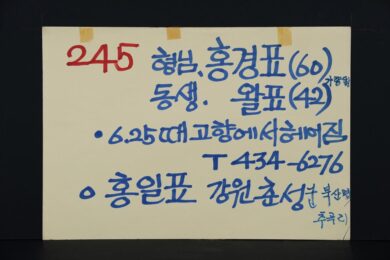 245 형님. 홍경표(60)
동생. 왈표(42)
• 6.25때 고향에서 헤어짐
T 434-6276
○ 홍일표 강원 춘성군 북산면
추곡리